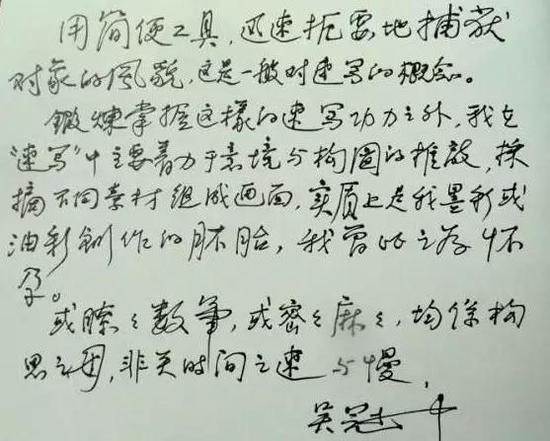 用简便工具，迅速扼要地捕获
对象的风貌，这是一般对速写的概念。
鍛煉掌握这樣的速写功力之外，我在
“速写”中主要着力于意境与构圖的推敲，採
摘不同素材组成画面，实质上是我墨彩或
油彩創作的胚胎，我曾名之存怀
孕。
或朦々数筆，或密々麻々，均係构
思之用，非关时间之速与慢，
吴冠中